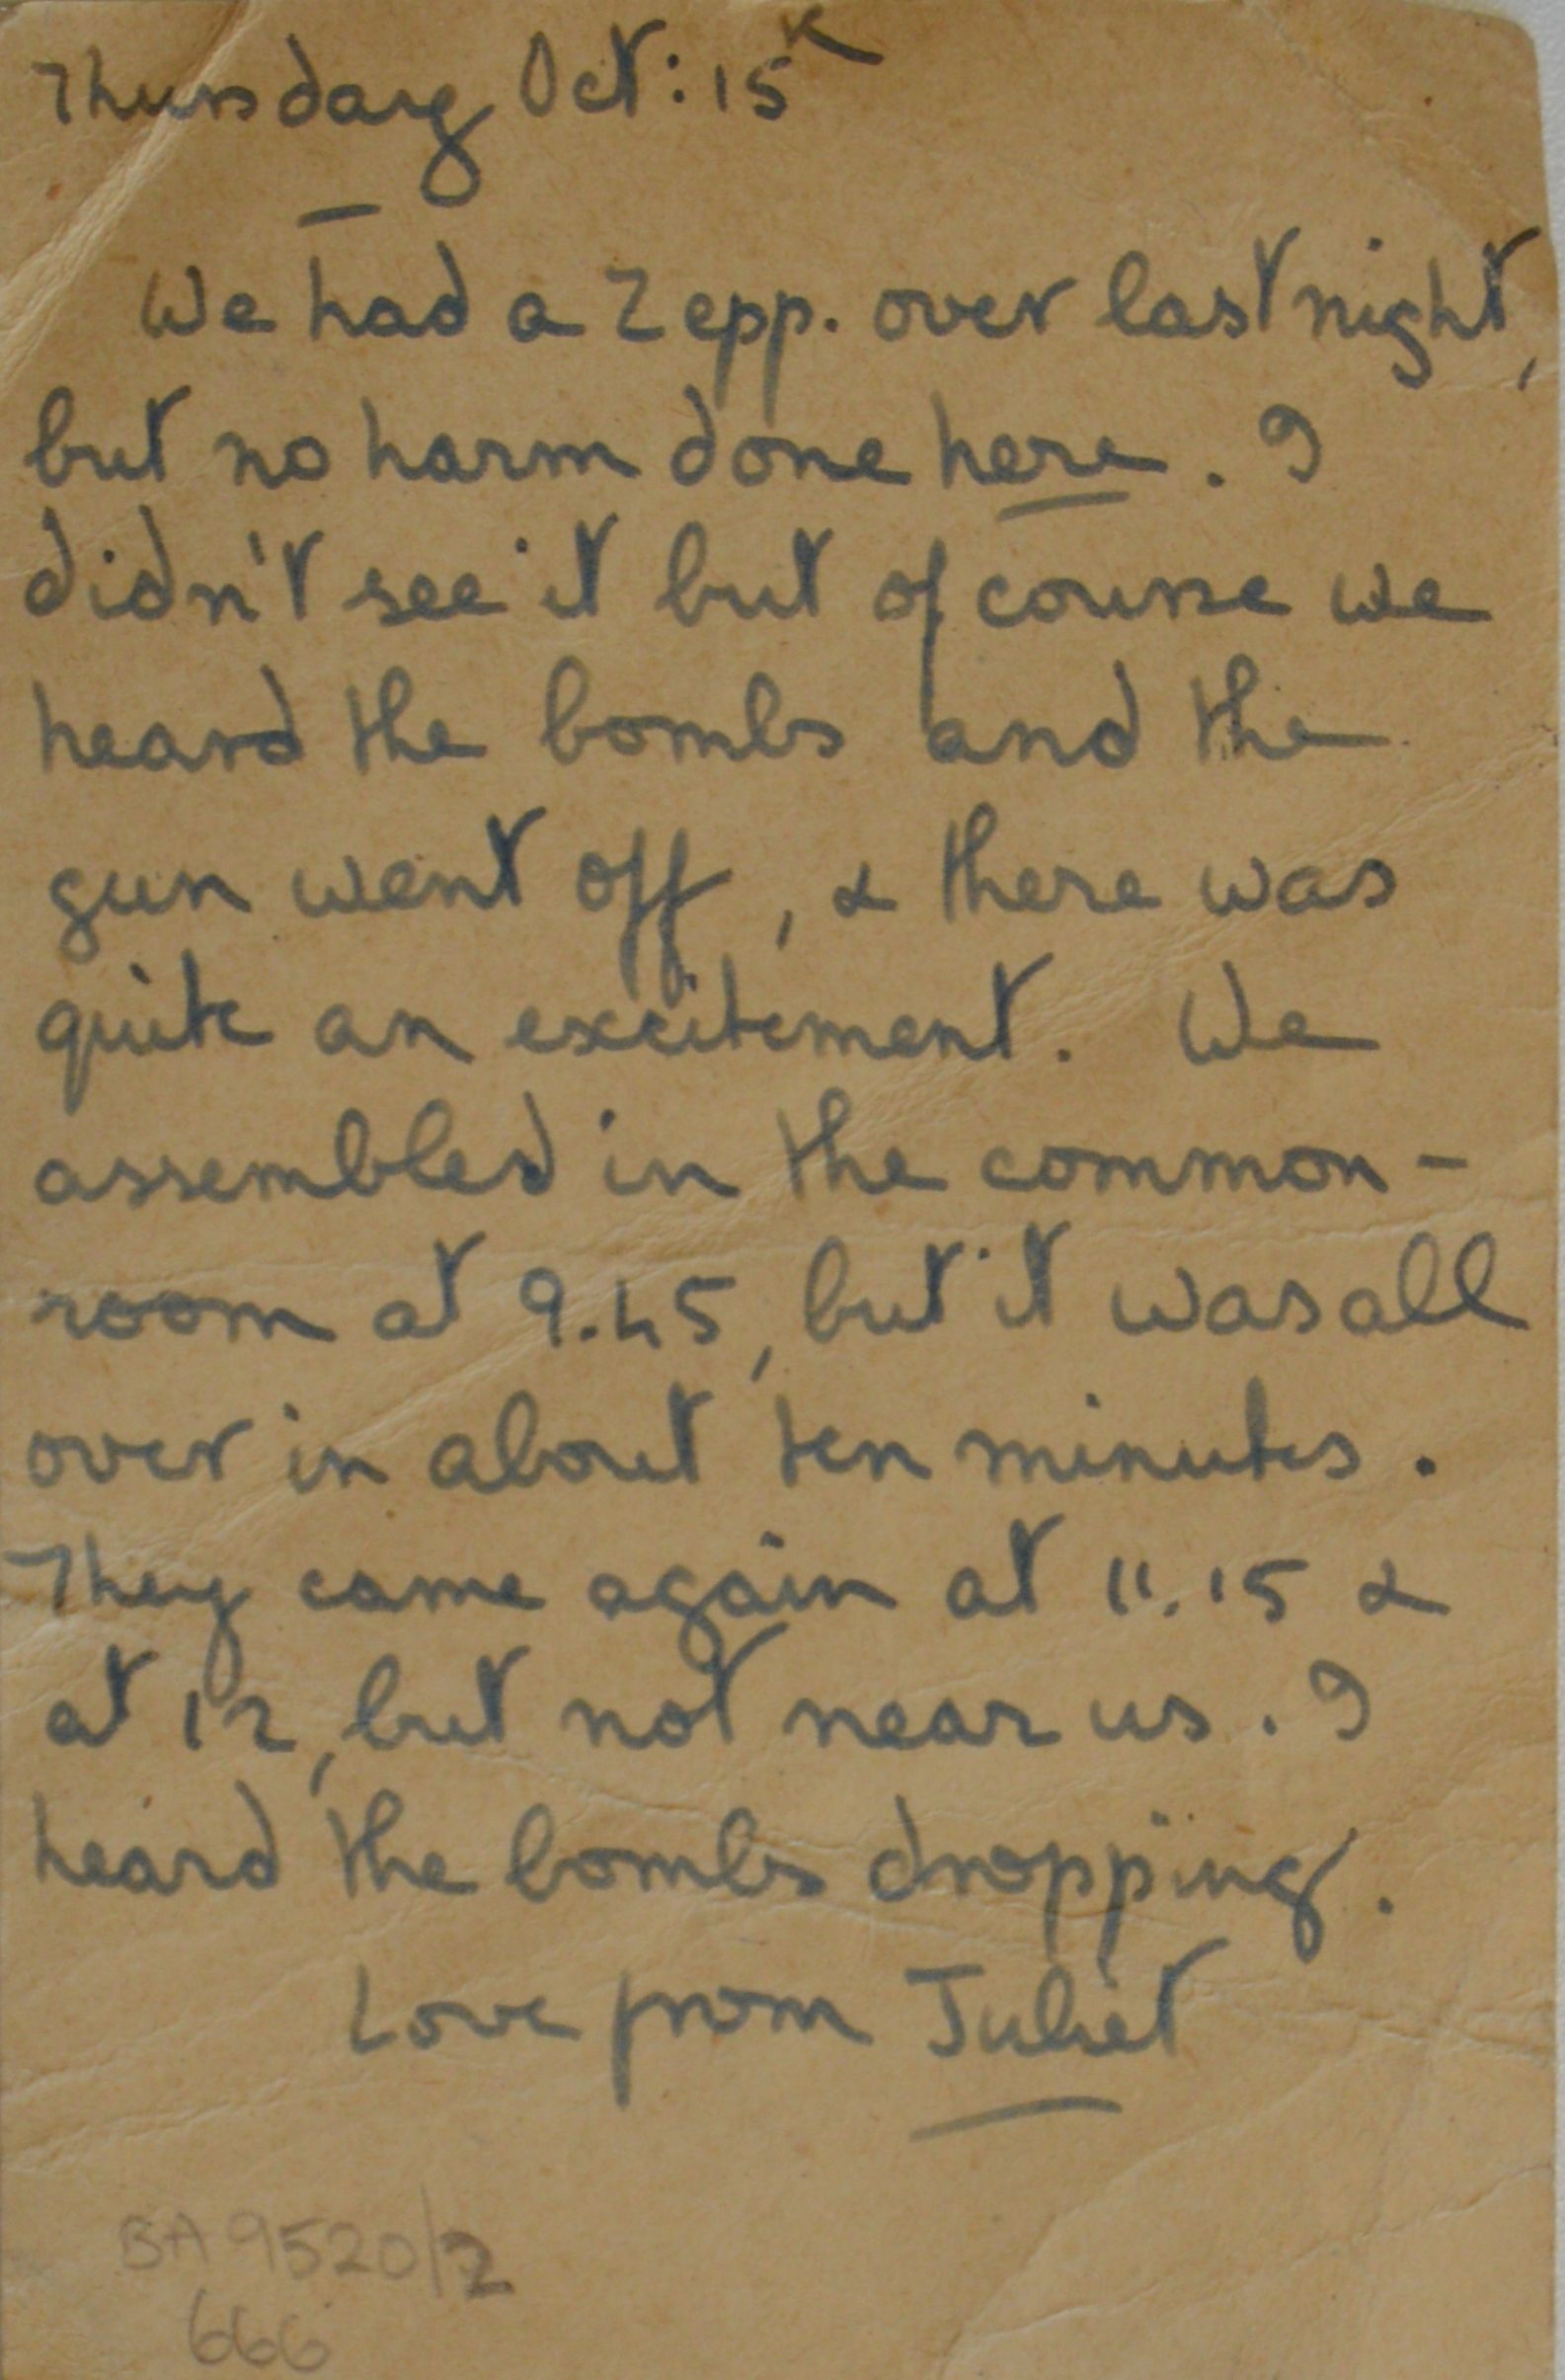 Thursday Oct: 15th
We had a Zepp. over last night,
but no harm done here. I
didn't see it but of course we
heard the bombs and the
gun went off, & there was
quite an excitement. We
assembled in the common-
room at 9.45, but it was all
over in about ten minutes.
They came again at 11.15 &
at 12, but not near us. I
heard the bombs dropping.
Love from Juliet
BA 9520/2
666